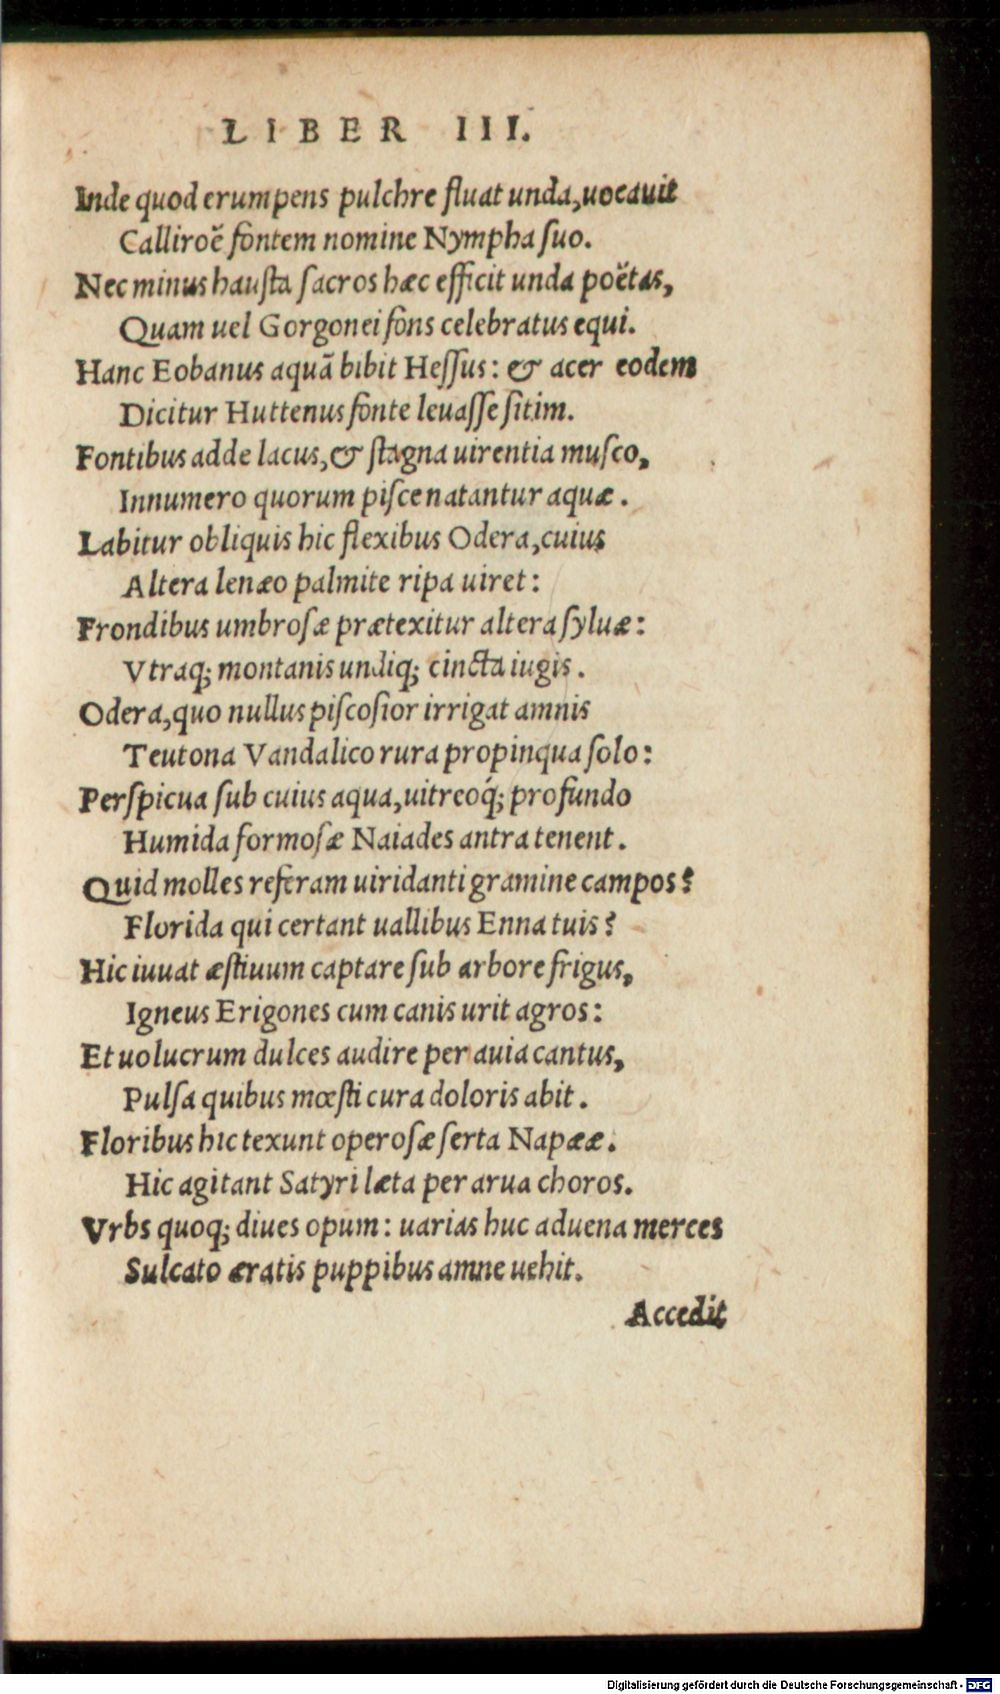 LIBER III.
Inde quod erumpens pulchre fluat unda, uocauit
Calliroë fontem nomine Nympha suo.
Nec minus hausta sacros hæc efficit unda poëtas,
Quam uel Gorgonei fons celebratus equi.
Hanc Eobanus aquã bibit Hessus: & acer eodem
Dicitur Huttenus fonte leuasse sitim.
Fontibus adde lacus, & stagna uirentia musco,
Innumero quorum pisce natantur aquæ.
Labitur obliquis hic flexibus Odera, cuius
Altera lenæo palmite ripa uiret:
Frondibus umbrosæ prætexitur altera syluæ:
Vtraq; montanis undiq; cincta iugis.
Odera, quo nullus piscosior irrigat amnis
Teutona Vandalico rura propinqua solo:
Perspicua sub cuius aqua, uitreoq́; profundo
Humida formosæ Naiades antra tenent.
Quid molles referam uiridanti gramine campos?
Florida qui certant uallibus Enna tuis?
Hic iuuat æstiuum captare sub arbore frigus,
Igneus Erigones cum canis urit agros:
Et uolucrum dulces audire per auia cantus,
Pulsa quibus mœsti cura doloris abit.
Floribus hic texunt operosæ serta Napææ.
Hic agitant Satyri læta per arua choros.
Vrbs quoq; diues opum: uarias huc aduena merces
Sulcato æratis puppibus amne uehit.
Accedit
Digitalisierung gefördert durch die Deutsche Forschungsgemeinschaft - DFG